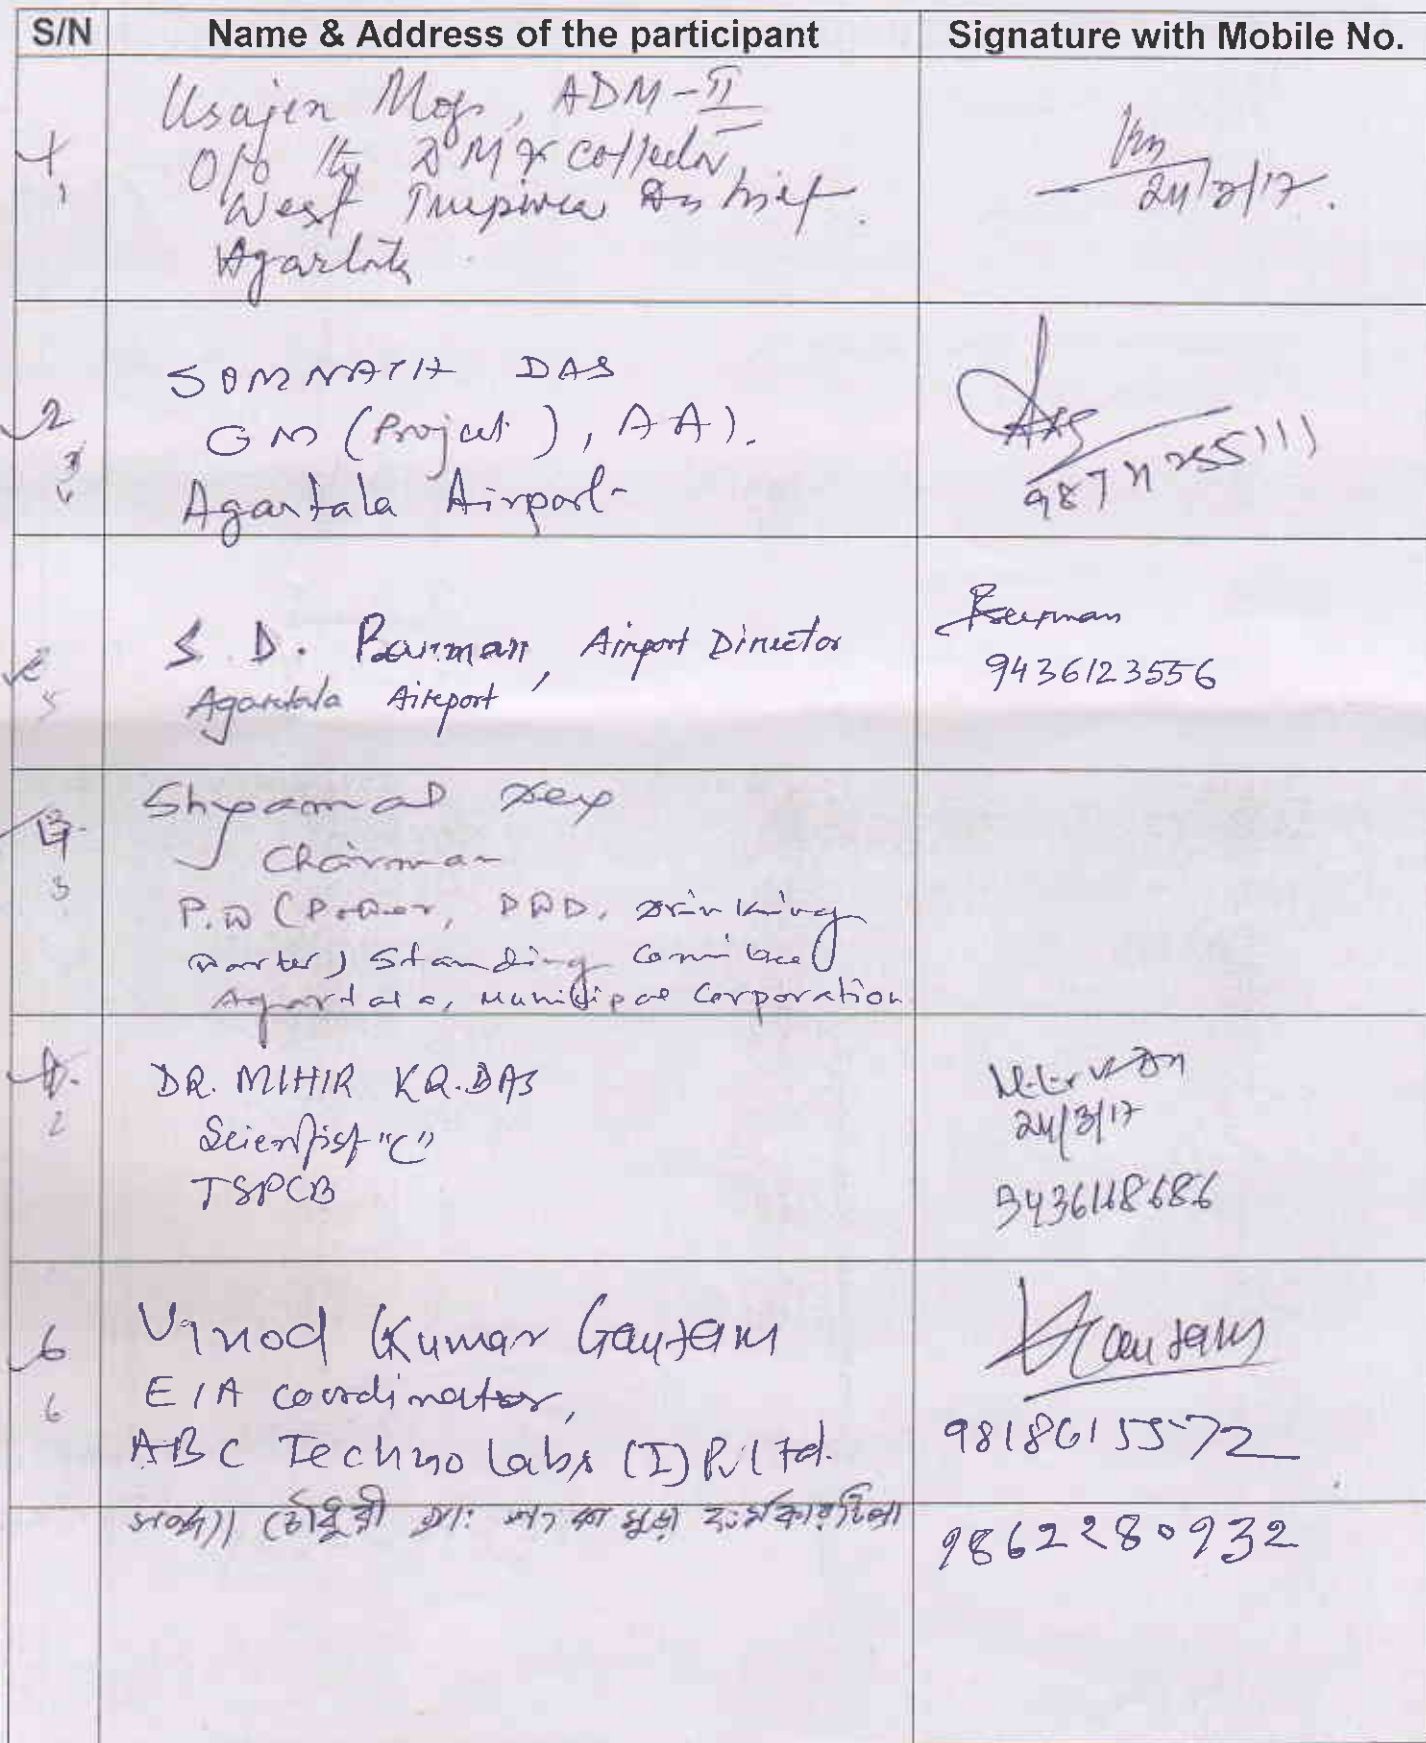 S/N Name & Address of the participant Signature with Mobile No.
1
Usajen Mog, ADM-II
O/o the DM & Collector,
West Tripura District.
Agartala
24/3/17.
2
SOMNATH DAS
GM (Project), AAI.
Agartala Airport
Das
S. D. Barman, Airport Director
Agartala Airport
5
Barman
9436123556
Shyamal Dey
Chairman
3
P.W (Power, DWD, Drinking
Water) Standing Committee
Agartala, Municipal Corporation
DR. MIHIR KR. DAS
2
Scientist "C"
TSPCB
24/3/17
9436118686
6
Vinod Kumar Gautam
EIA coordinator,
6
ABC Techno Labs (I) Pvt Ltd.
VGautam
9818615572
চৌধুরী
9862280932